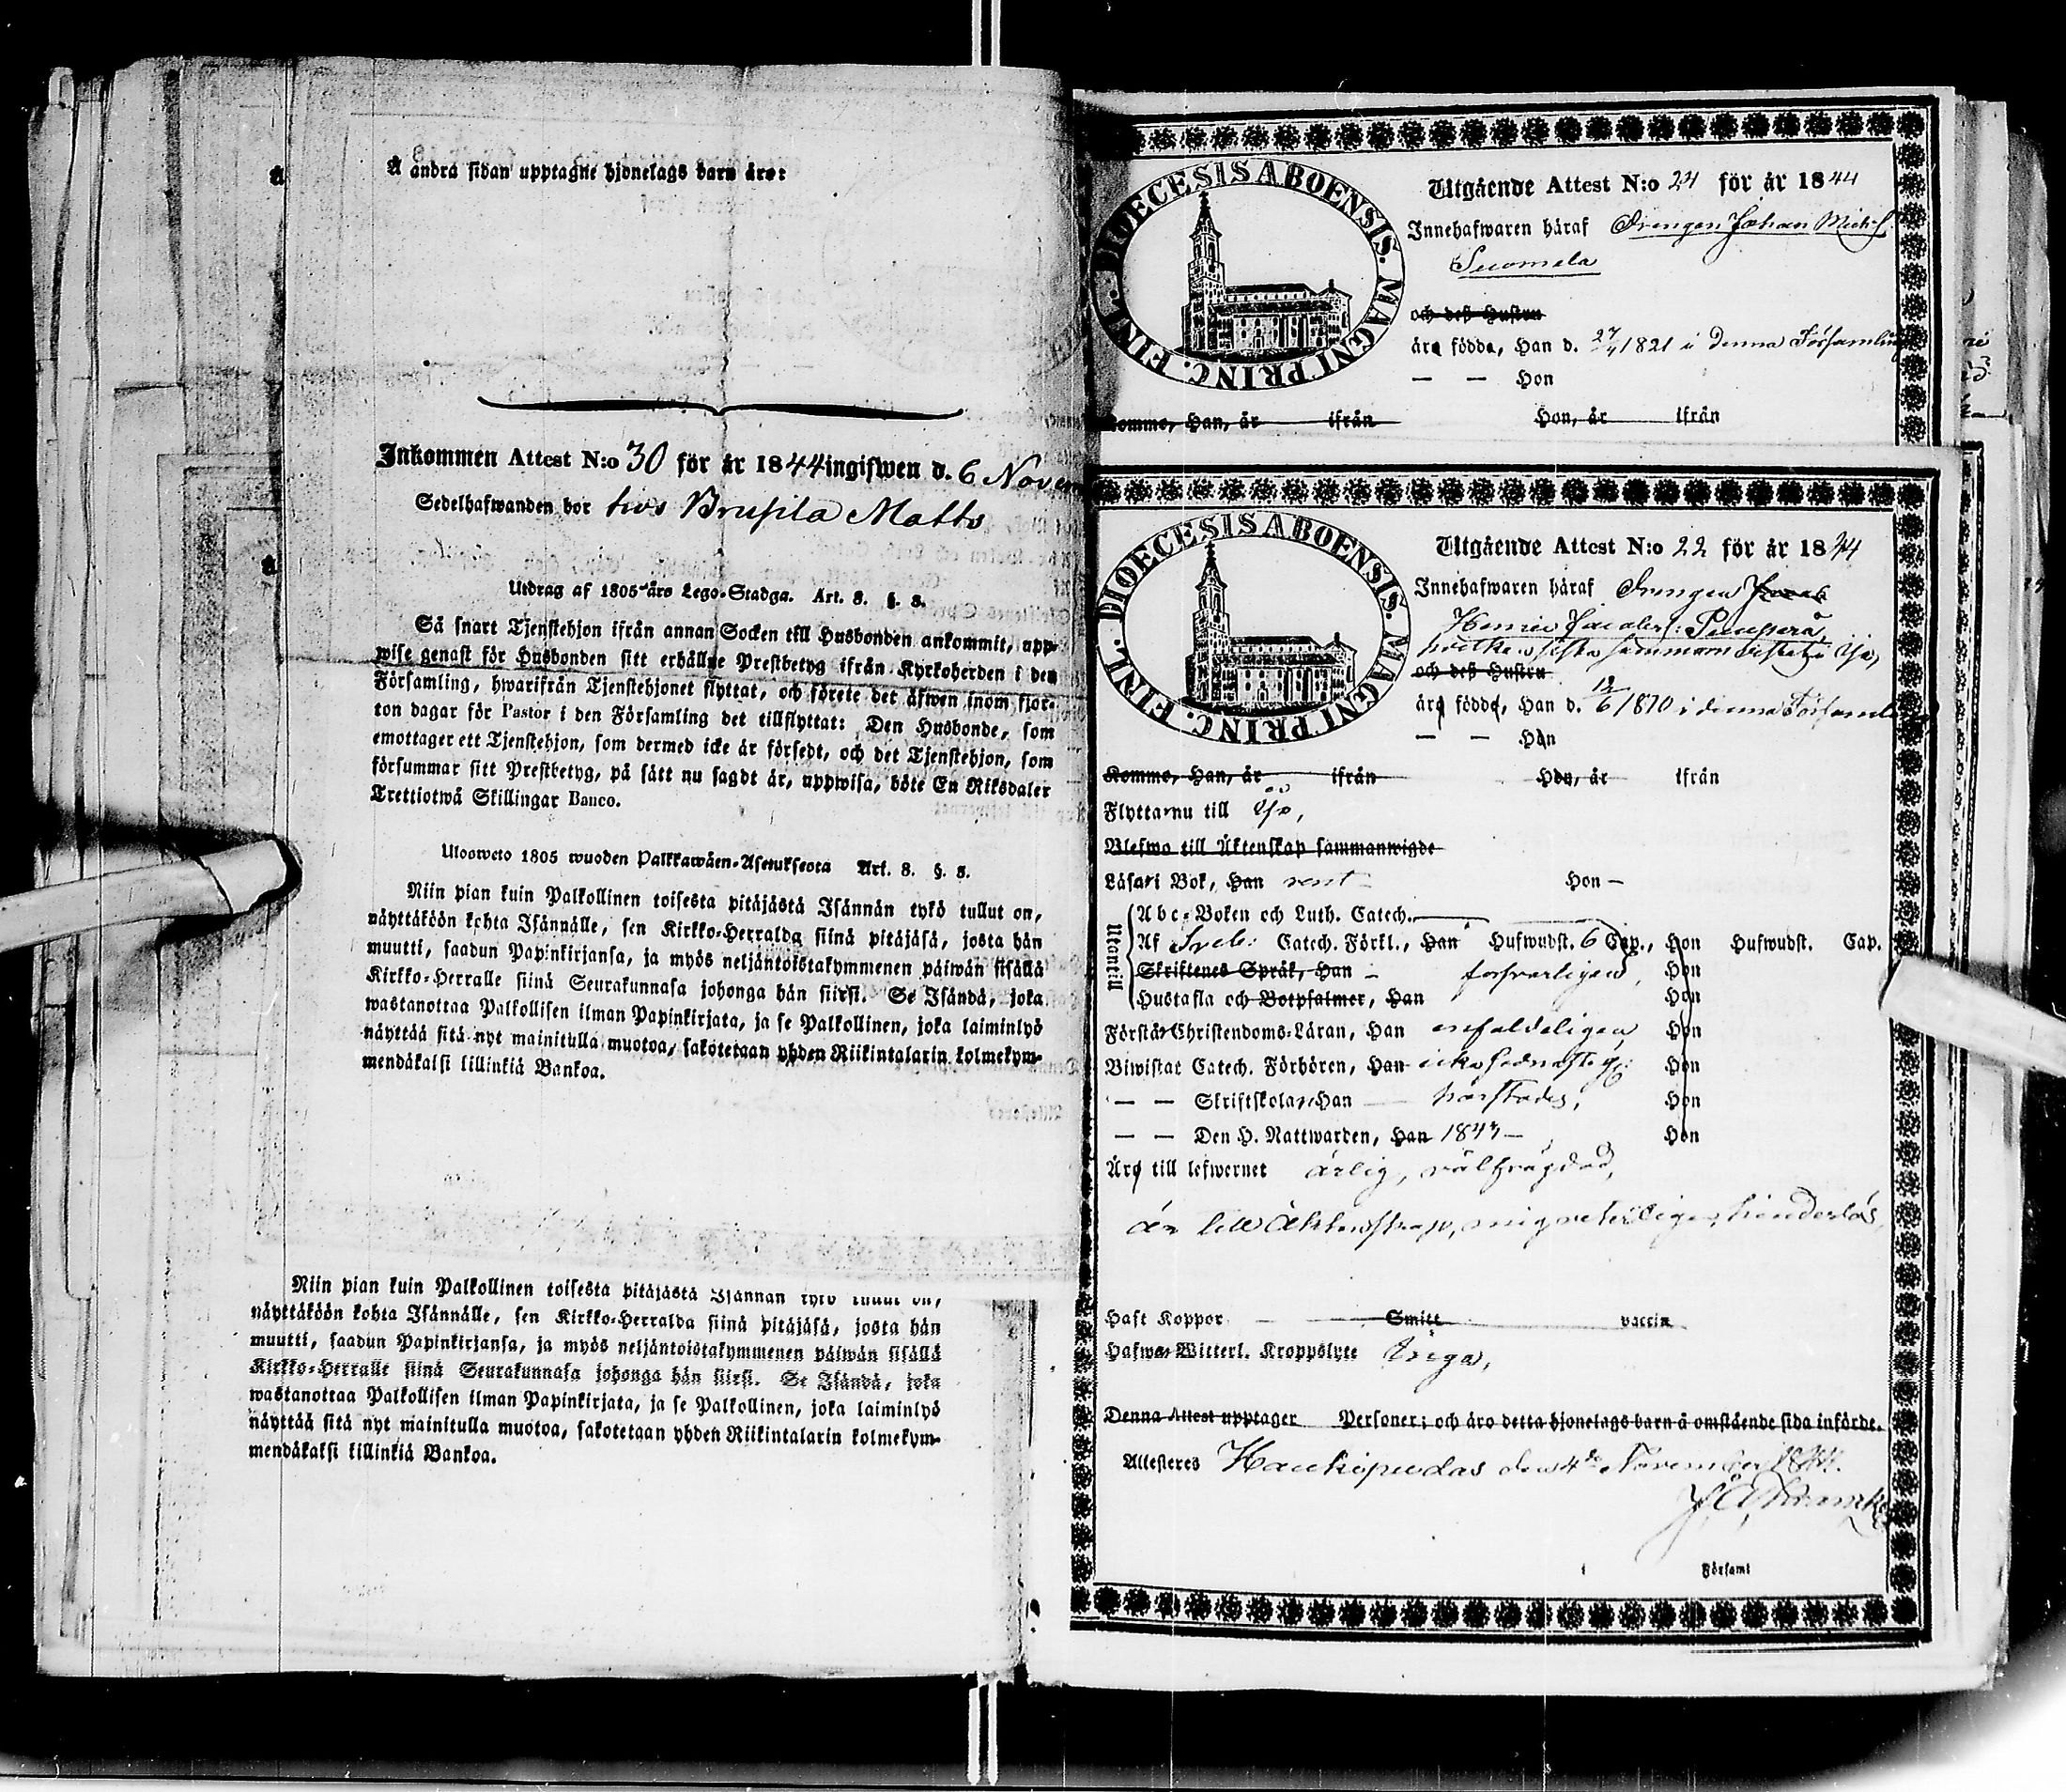 Å andra sidan upptagne hjonelags barn äro:
Inkommen Attest N:o 30 för år 1844 ingifwen d. 6 Novem
Sedelhafwanden bor hos Brusila Matts
Utdrag af 1805 års Lego-Stadga. Art. 8. §. 8.
Så snart Tjenstehjon ifrån annan Socken till Husbonden ankommit, upp-
wise genast för Husbonden sitt erhållne Prestbetyg ifrån Kyrkoherden i den
Församling, hwarifrån Tjenstehjonet flyttat, och förete det äfwen inom fjor-
ton dagar för Pastor i den Församling det tillflyttat: Den Husbonde, som
emottager ett Tjenstehjon, som dermed icke är försedt, och det Tjenstehjon, som
försummar sitt Prestbetyg, på sätt nu sagdt är, uppwisa, böte En Riksdaler
Trettiotwå Skillingar Banco.
Ulosweto 1805 wuoden Palkkawäen-Asetuksesta Art. 8. §. 8.
Niin pian kuin Palkollinen toisesta pitäjästä Isännän tykö tullut on,
näyttäköön kohta Isännälle, sen Kirkko-Herralda siinä pitäjäsä, josta hän
muutti, saadun Papinkirjansa, ja myös neljäntoistakymmenen päiwän sisällä
Kirkko-Herralle siinä Seurakunnasa johonga hän siirsi. Se Isändä, joka
wastanottaa Palkollisen ilman Papinkirjata, ja se Palkollinen, joka laiminlyö
näyttää sitä nyt mainitulla muotoa, sakotetaan yhden Riikintalarin kolmekym-
mendäkaksi killinkiä Bankoa.
Niin pian kuin Palkollinen toisesta pitäjästä Isännän tykö tullut on,
näyttäköön kohta Isännälle, sen Kirkko-Herralda siinä pitäjäsä, josta hän
muutti, saadun Papinkirjansa, ja myös neljäntoistakymmenen päiwän sisällä
Kirkko-Herralle siinä Seurakunnasa johonga hän siirsi. Se Isändä, joka
wastanottaa Palkollisen ilman Papinkirjata, ja se Palkollinen, joka laiminlyö
näyttää sitä nyt mainitulla muotoa, sakotetaan yhden Riikintalarin kolmekym-
mendäkaksi killinkiä Bankoa.
DIOECESIS ABOENSIS. MAGNI PRINC. FINL.
Utgående Attest N:o 24 för år 1844
Innehafwaren häraf Drengen Johan Michels
Suomela
och dess Hustru
äro födde, Han d. 27/4 1821 i denna Församling
— — Hon
Komme, Han, år ifrån Hon, år ifrån
DIOECESIS ABOENSIS. MAGNI PRINC. FINL.
Utgående Attest N:o 22 för år 1844
Innehafwaren häraf Drengen
Henric
och dess Hustru
äro födde, Han d. 12/6 1810 i denna Församl
— — Hon
Komme, Han, år ifrån Hon, år ifrån
Flytta nu till Ijo,
Blefwo till Äktenskap sammanwigde
Läsa i Bok, Han rent Hon —
Utantill
Abc-Boken och Luth. Catech.
Af Sveb: Catech. Förkl., Han Hufwudst. 6 Cap., Hon Hufwudst. Cap.
Skriftenes Språk, Han — försvarligen, Hon
Hustafla och Botpsalmer, Han Hon
Förstår Christendoms-Läran, Han enfaldeligen Hon
Biwistat Catech. Förhören, Han icke Hon
— — Skriftskolan, Han Hon
— — Den H. Nattwarden, Han 1843 — Hon
Äro till lefwernet ärlig, välfrägdad,
är till Äktenskap, mig veterligen, hinderlös,
Haft Koppor — Smitt vaccin
Hafwa Witterl. Kroppslyte Inga,
Denna Attest upptager Personer; och äro detta hjonelags barn å omstående sida införde.
Attesteres Haukipudas den 4de November 1844.
Församl